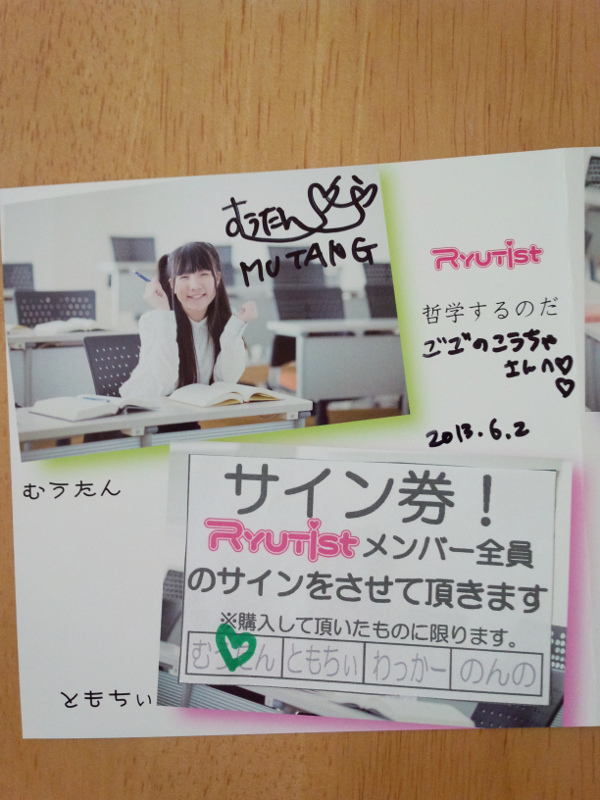 むうたん
MUTANG
RYUTist
哲学するのだ
ゴゴのこうちゃ
さんへ♡
♡
2013.6.2
むうたん
サイン券！
RYUTistメンバー全員
のサインをさせて頂きます
※購入して頂いたものに限ります。
むうたん ともちぃ わっかー のんの
ともちぃ